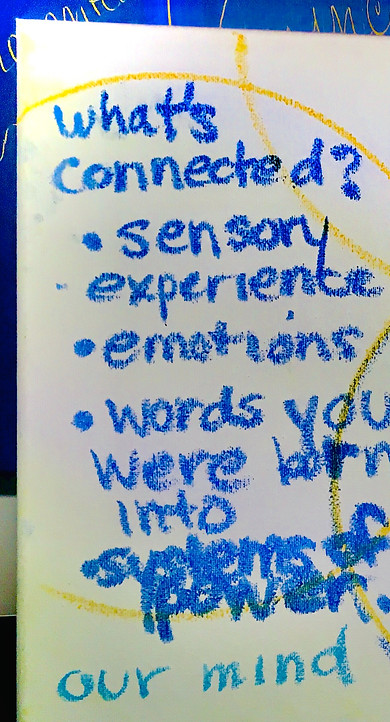 what's
connected?
• sensory
experience
• emotions
• words you
were born
into
• systems of
power.
our mind